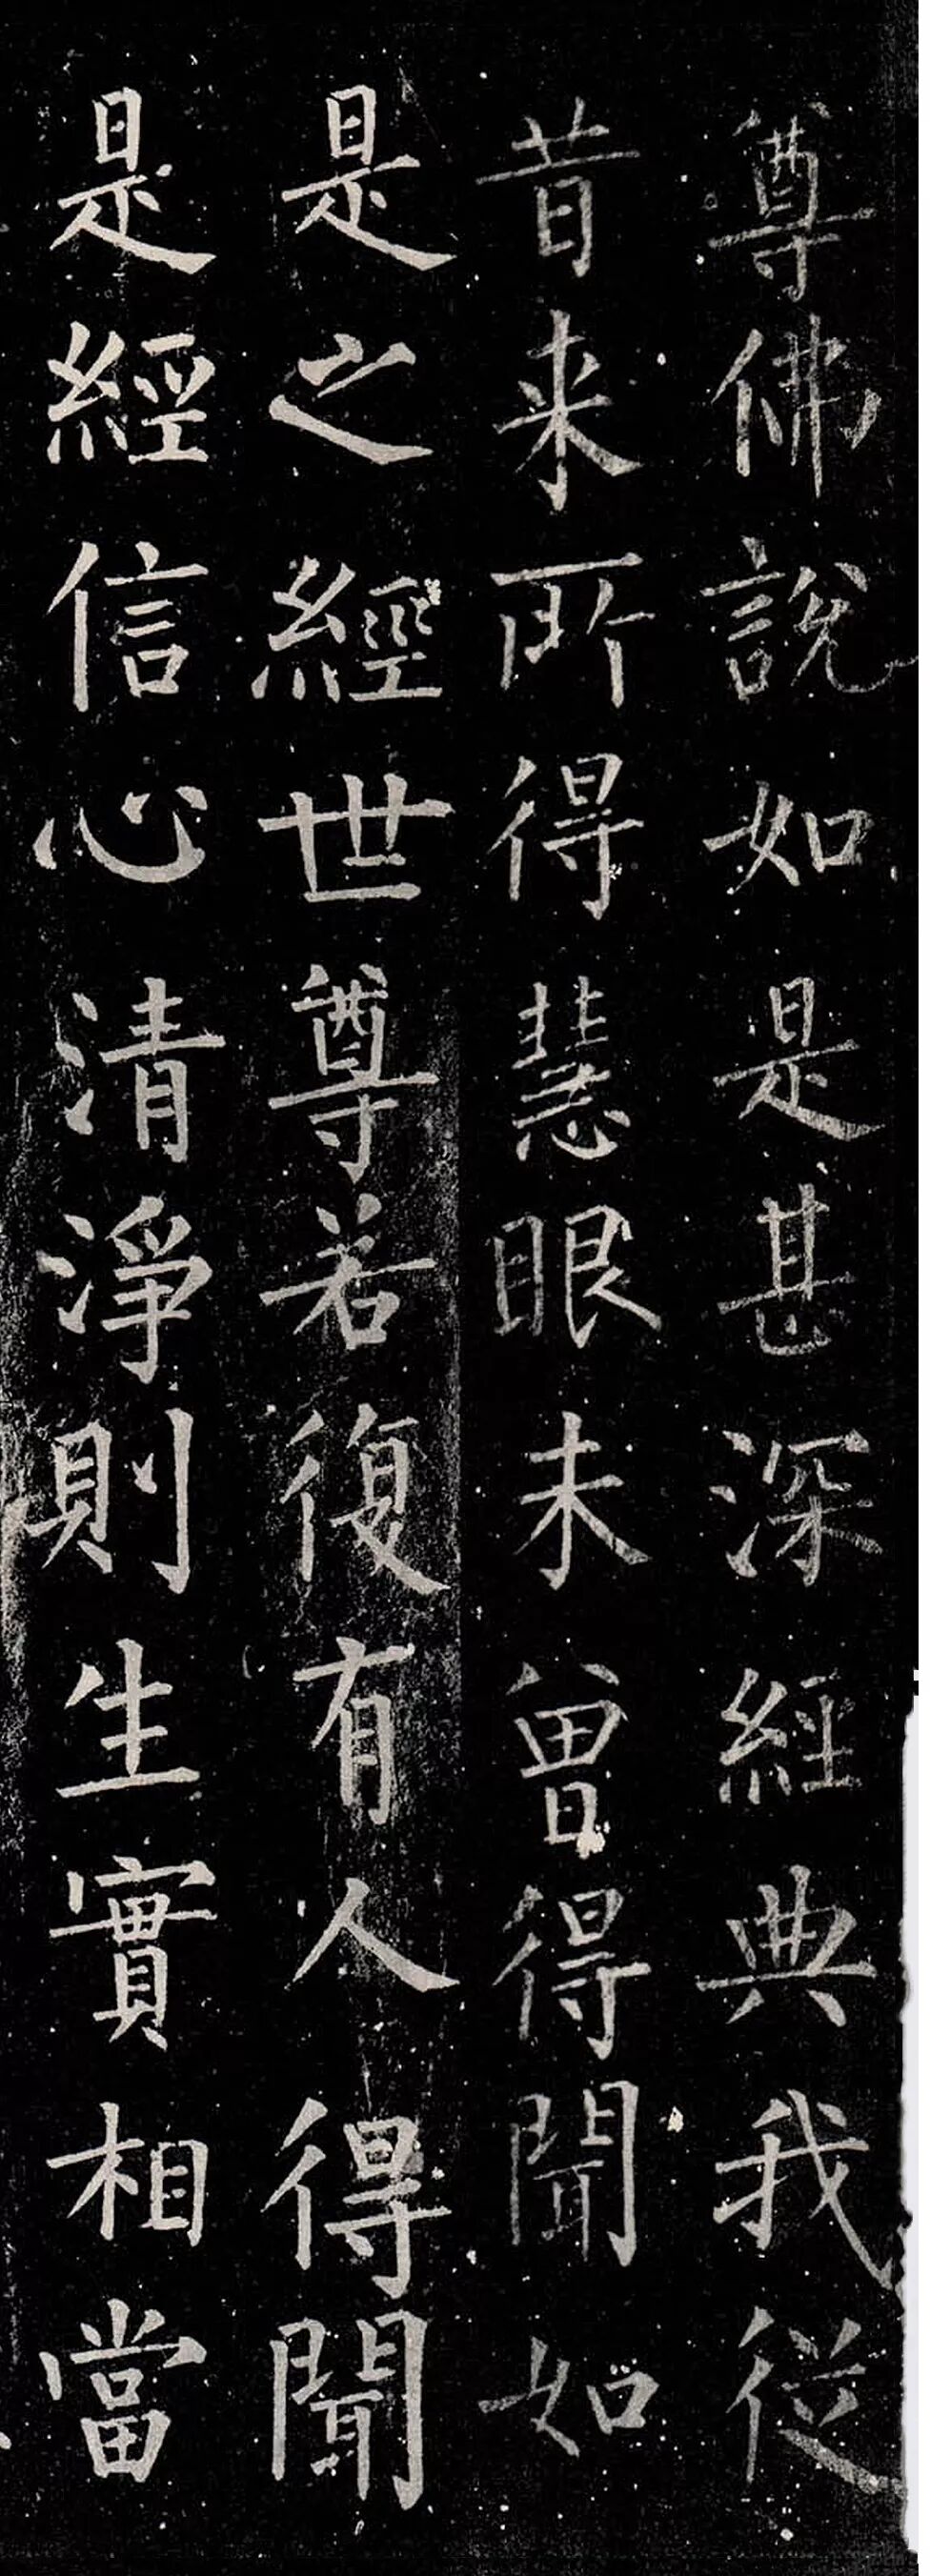 尊佛說如是甚深經典我從
昔来所得慧眼未曾得聞如
是之經世尊若復有人得聞
是經信心清淨則生實相當